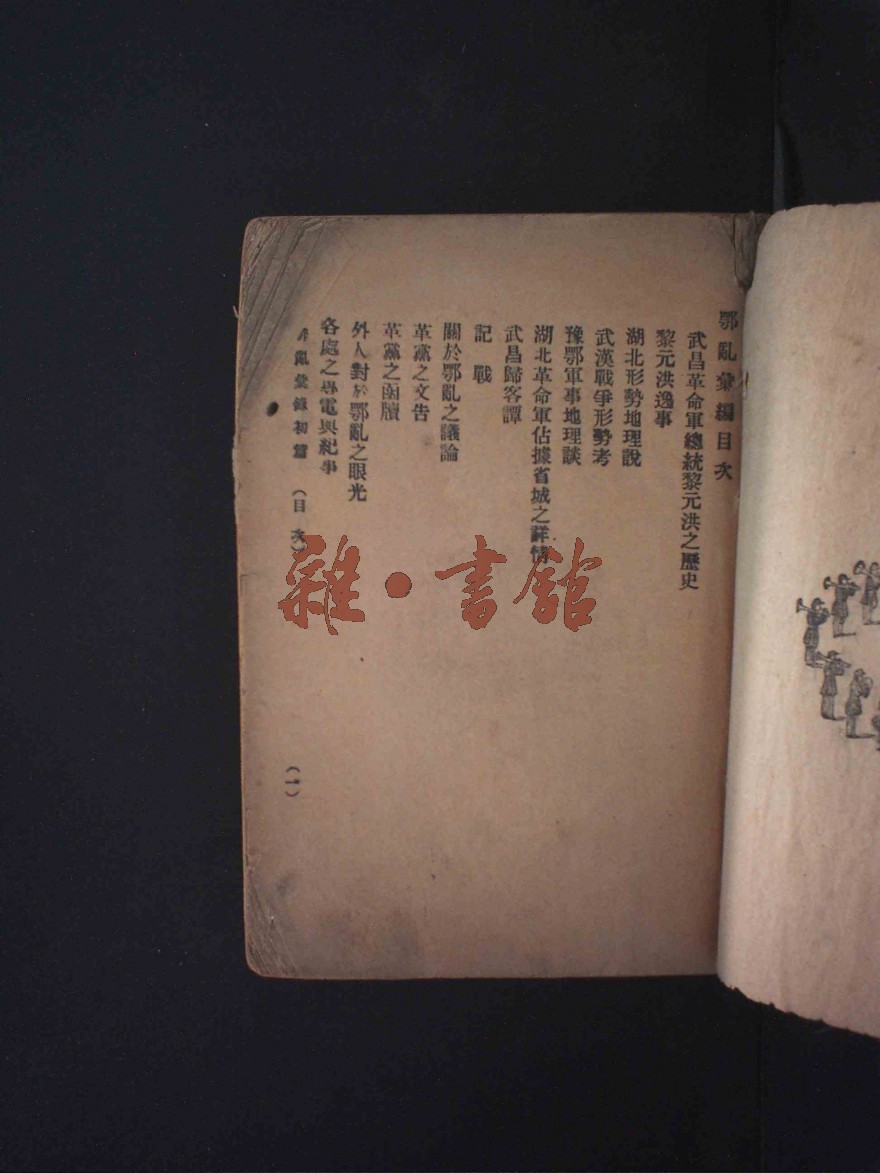 鄂亂彙編目次
武昌革命軍總統黎元洪之歷史
黎元洪逸事
湖北形勢地理說
武漢戰爭形勢考
豫鄂軍事地理談
湖北革命軍佔據省城之詳情
武昌歸客譚
記戰
關於鄂亂之議論
革黨之文告
革黨之函牘
外人對於鄂亂之眼光
各處之專電與紀事
鄂亂彙錄初篇 (目次)
(一)
雜·書館